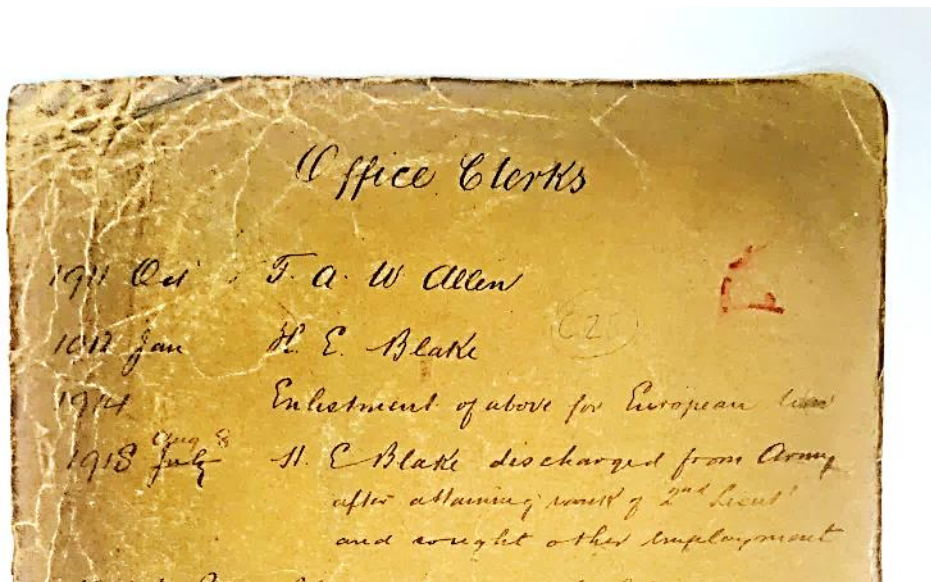 Office Clerks
1911 Oct T. A. W Allen
C 25
1912 Jan H. E. Blake
1914 Enlistment of above for European War
Aug 8
1918 July H. E Blake discharged from Army
after attaining rank of 2nd Lieut
and sought other employment